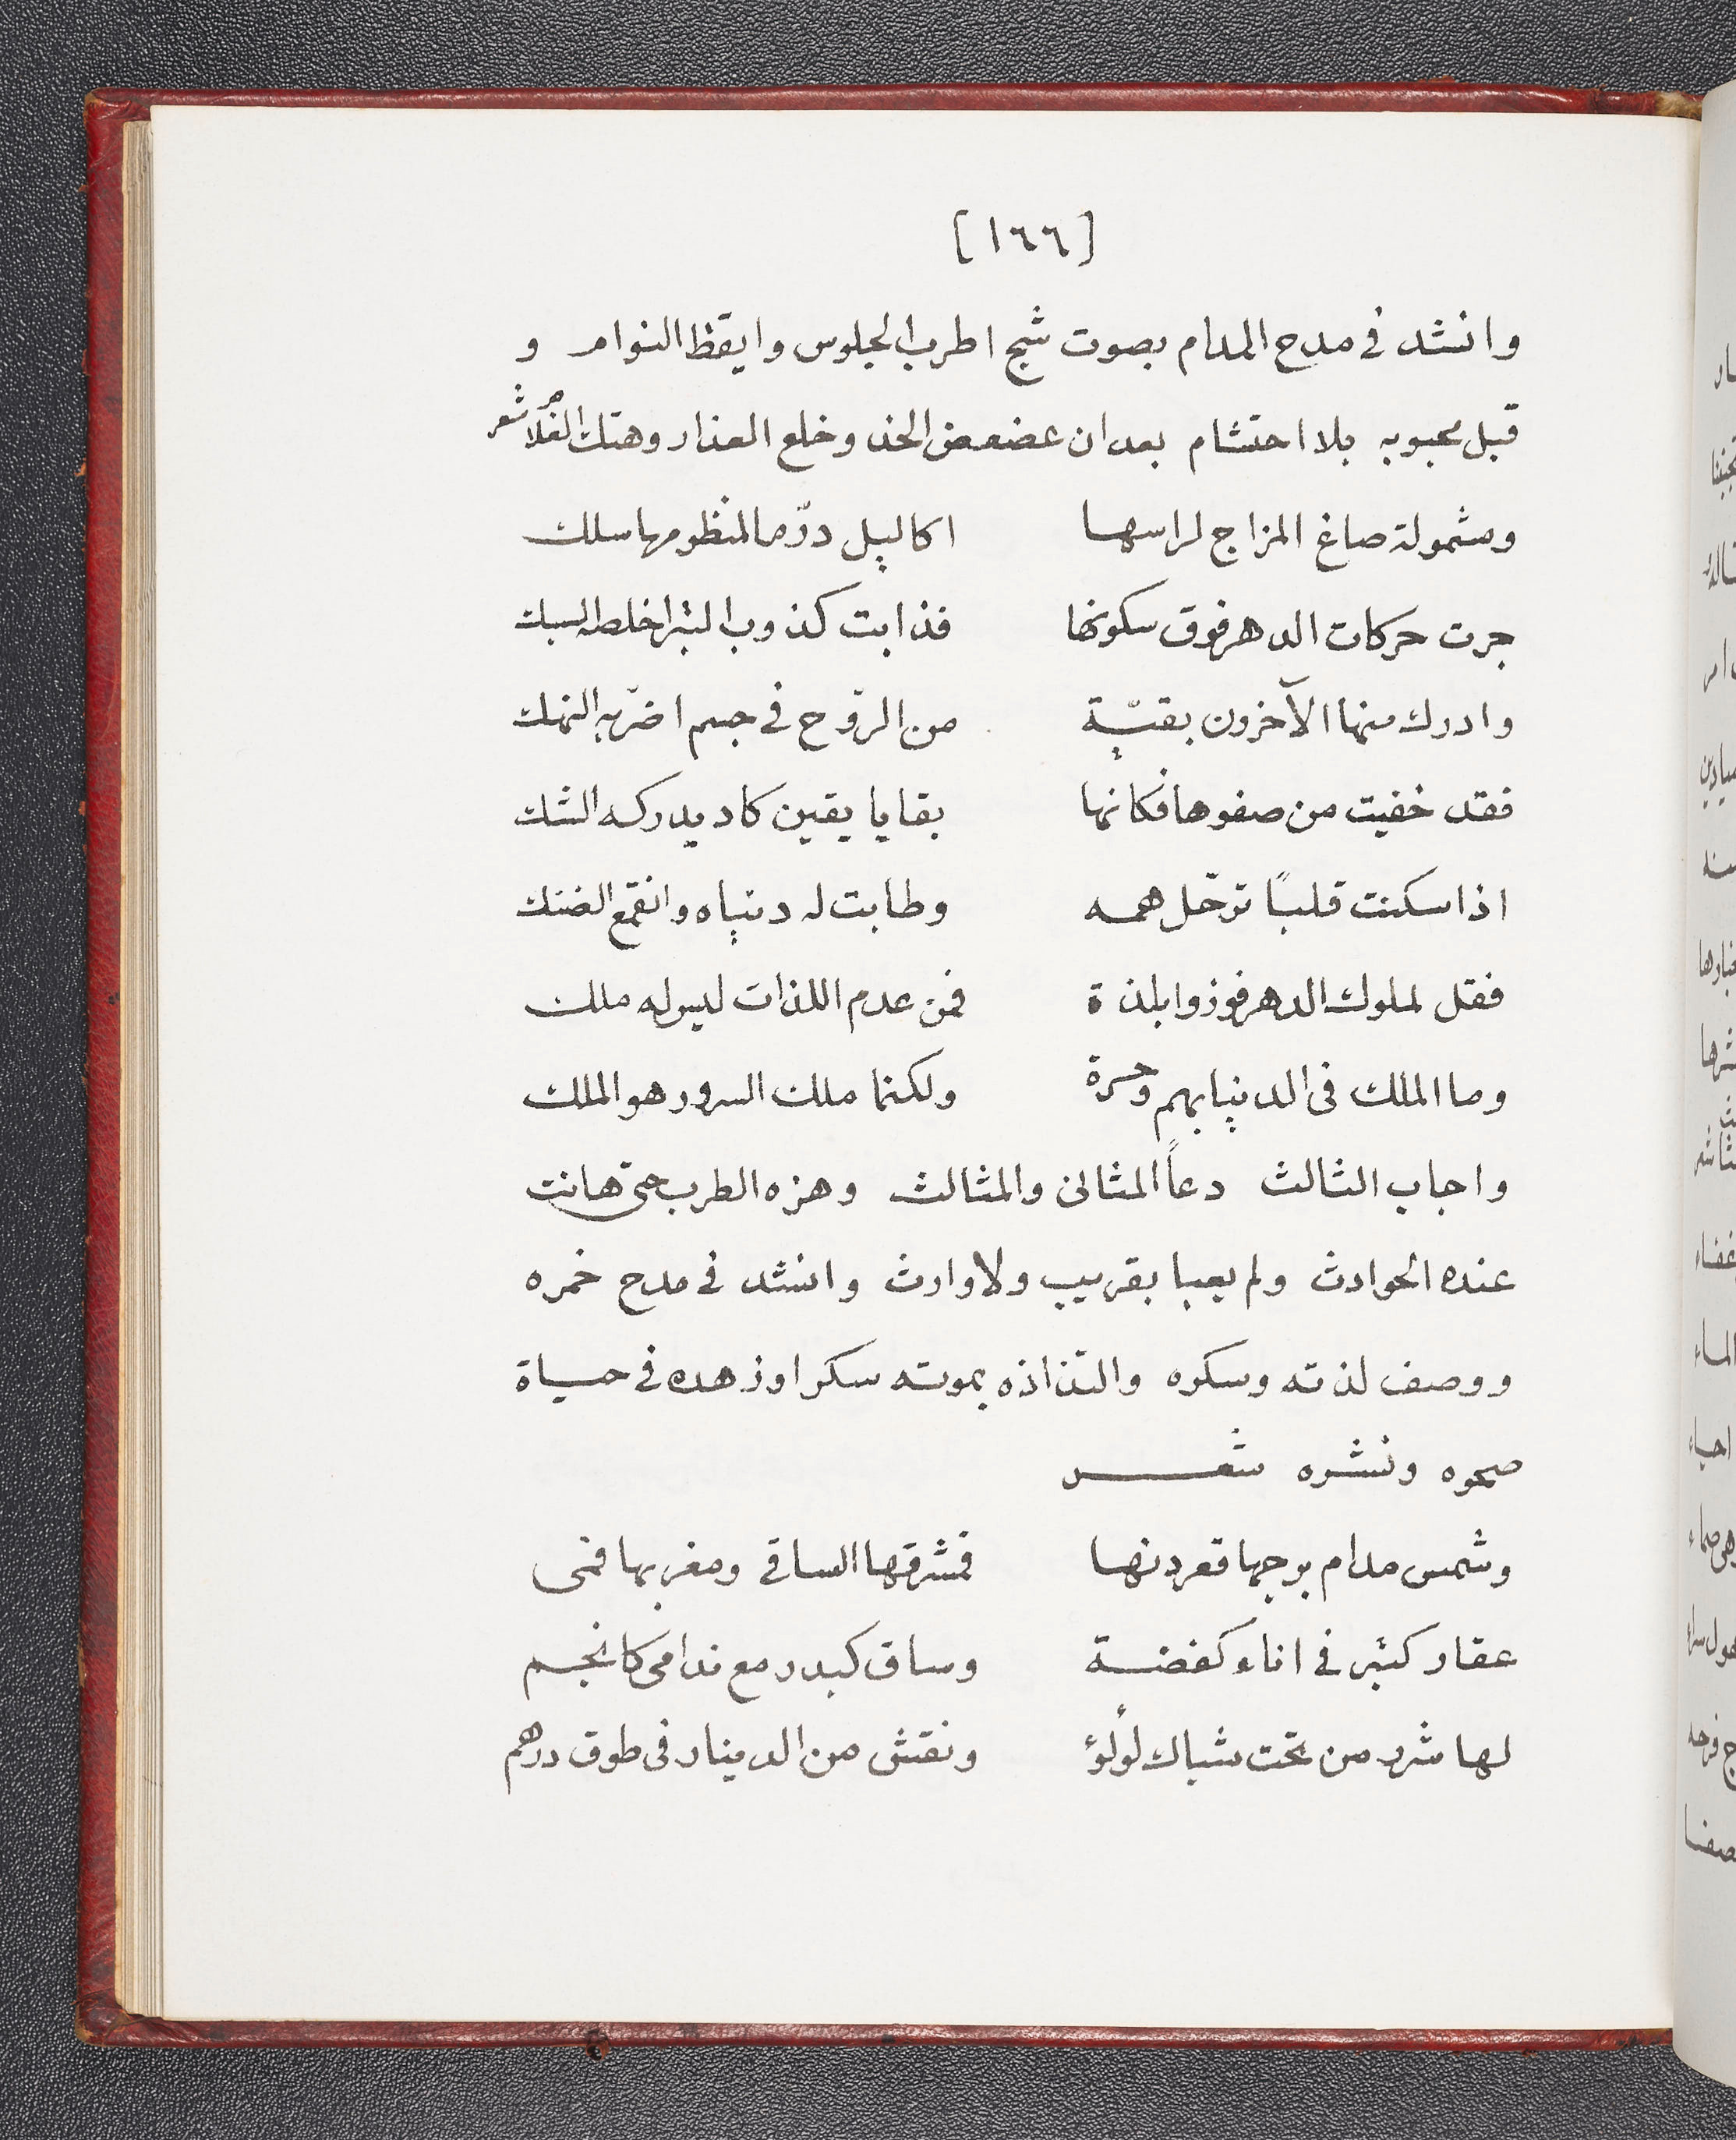 [١٦٦]
وانشد فى مدح المدام بصوت شج اطرب الجلوس وايقظ النوام و
قبل محبوبه بلا احتشام بعد ان عضعض الخد وخلع العذار وهتك شعر
ومشمولة صاغ المزاج لراسها اكاليل درّ ما لمنظومها سلك
جرت حركات الدهر فوق سكونها فذابت كذوب التبر اخلصه السبك
وادرك منها الآخرون بقيّة من الروح فى جسم اضرّ به النهك
فقد خفيت من صفوها فكانها بقايا يقين كاد يدركه الشك
اذا سكنت قلبًا ترحّل همه وطابت له دنياه وانقمع الضنك
فقل لملوك الدهر فوزوا بلذة فمن عدم اللذات ليس له ملك
وما الملك فى الدنيا بهم وحسرة ولكنما ملك السرور هو الملك
واجاب الثالث دعاً المثانى والمثالث وهزه الطرب حتى هانت
عنده الحوادث ولم يعبا بقريب ولا وارث وانشد فى مدح خمره
ووصف لذته وسكره والتذاذه بموته سكرا وزهده فى حياة
صحوه ونشره شعر
وشمس مدام برجها قعر دنها فمشرقها الساقى ومغربها فمى
عقار كتبر فى اناء كفضة وساق كبدر مع ندامى كانجم
لها شرر من تحت شباك لولؤ ونقش من الدينار فى طوق درهم